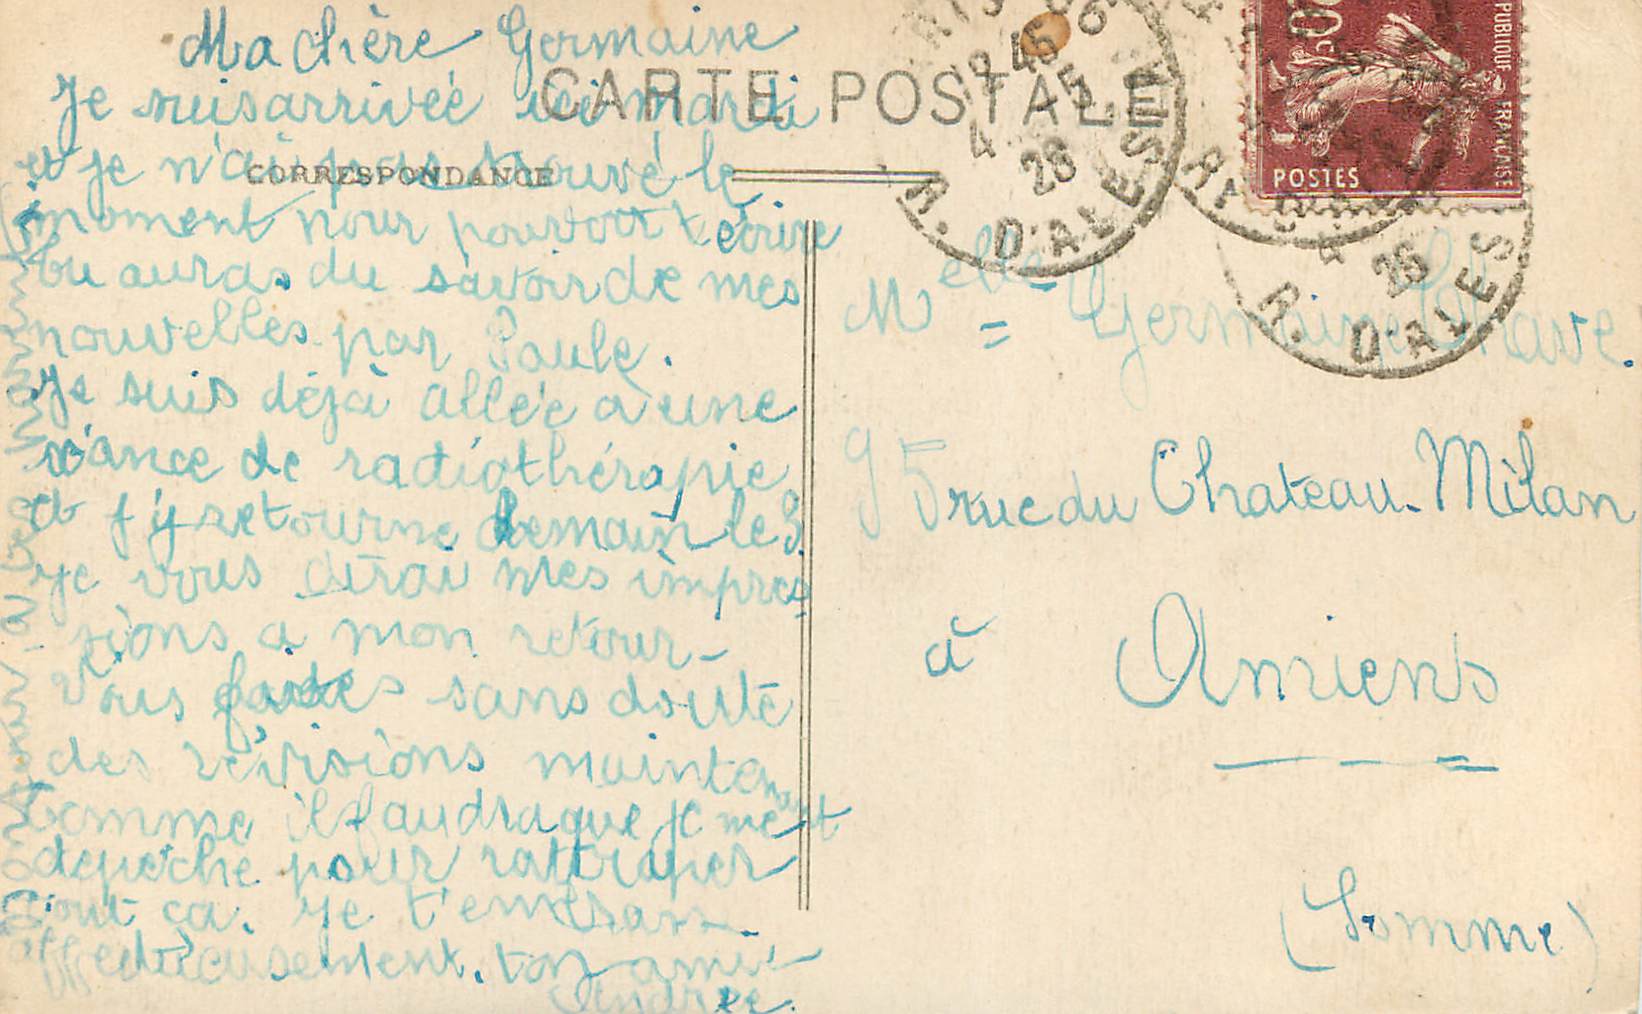 Ma chère Germaine
Je suis arrivée ici mardi
et je n'ai pas trouvé le
moment pour pouvoir t'écrire
tu auras du savoir de mes
nouvelles par Paule.
Je suis déjà allée à une
séance de radiothérapie
et j'y retourne demain le 3
je vous dirai mes impres
sions a mon retour -
Vous faites sans doute
des révisions maintenant
comme il faudra que je me
dépêche pour rattraper
tout ça. Je t'embrasse
affectueusement. ton amie
Andrée.
CARTE POSTALE
CORRESPONDANCE
POSTES
R. D'ALESIA
4 28
R. D'ALES
Melle Germaine
95 rue du Chateau-Milan
à Amiens
(Somme)